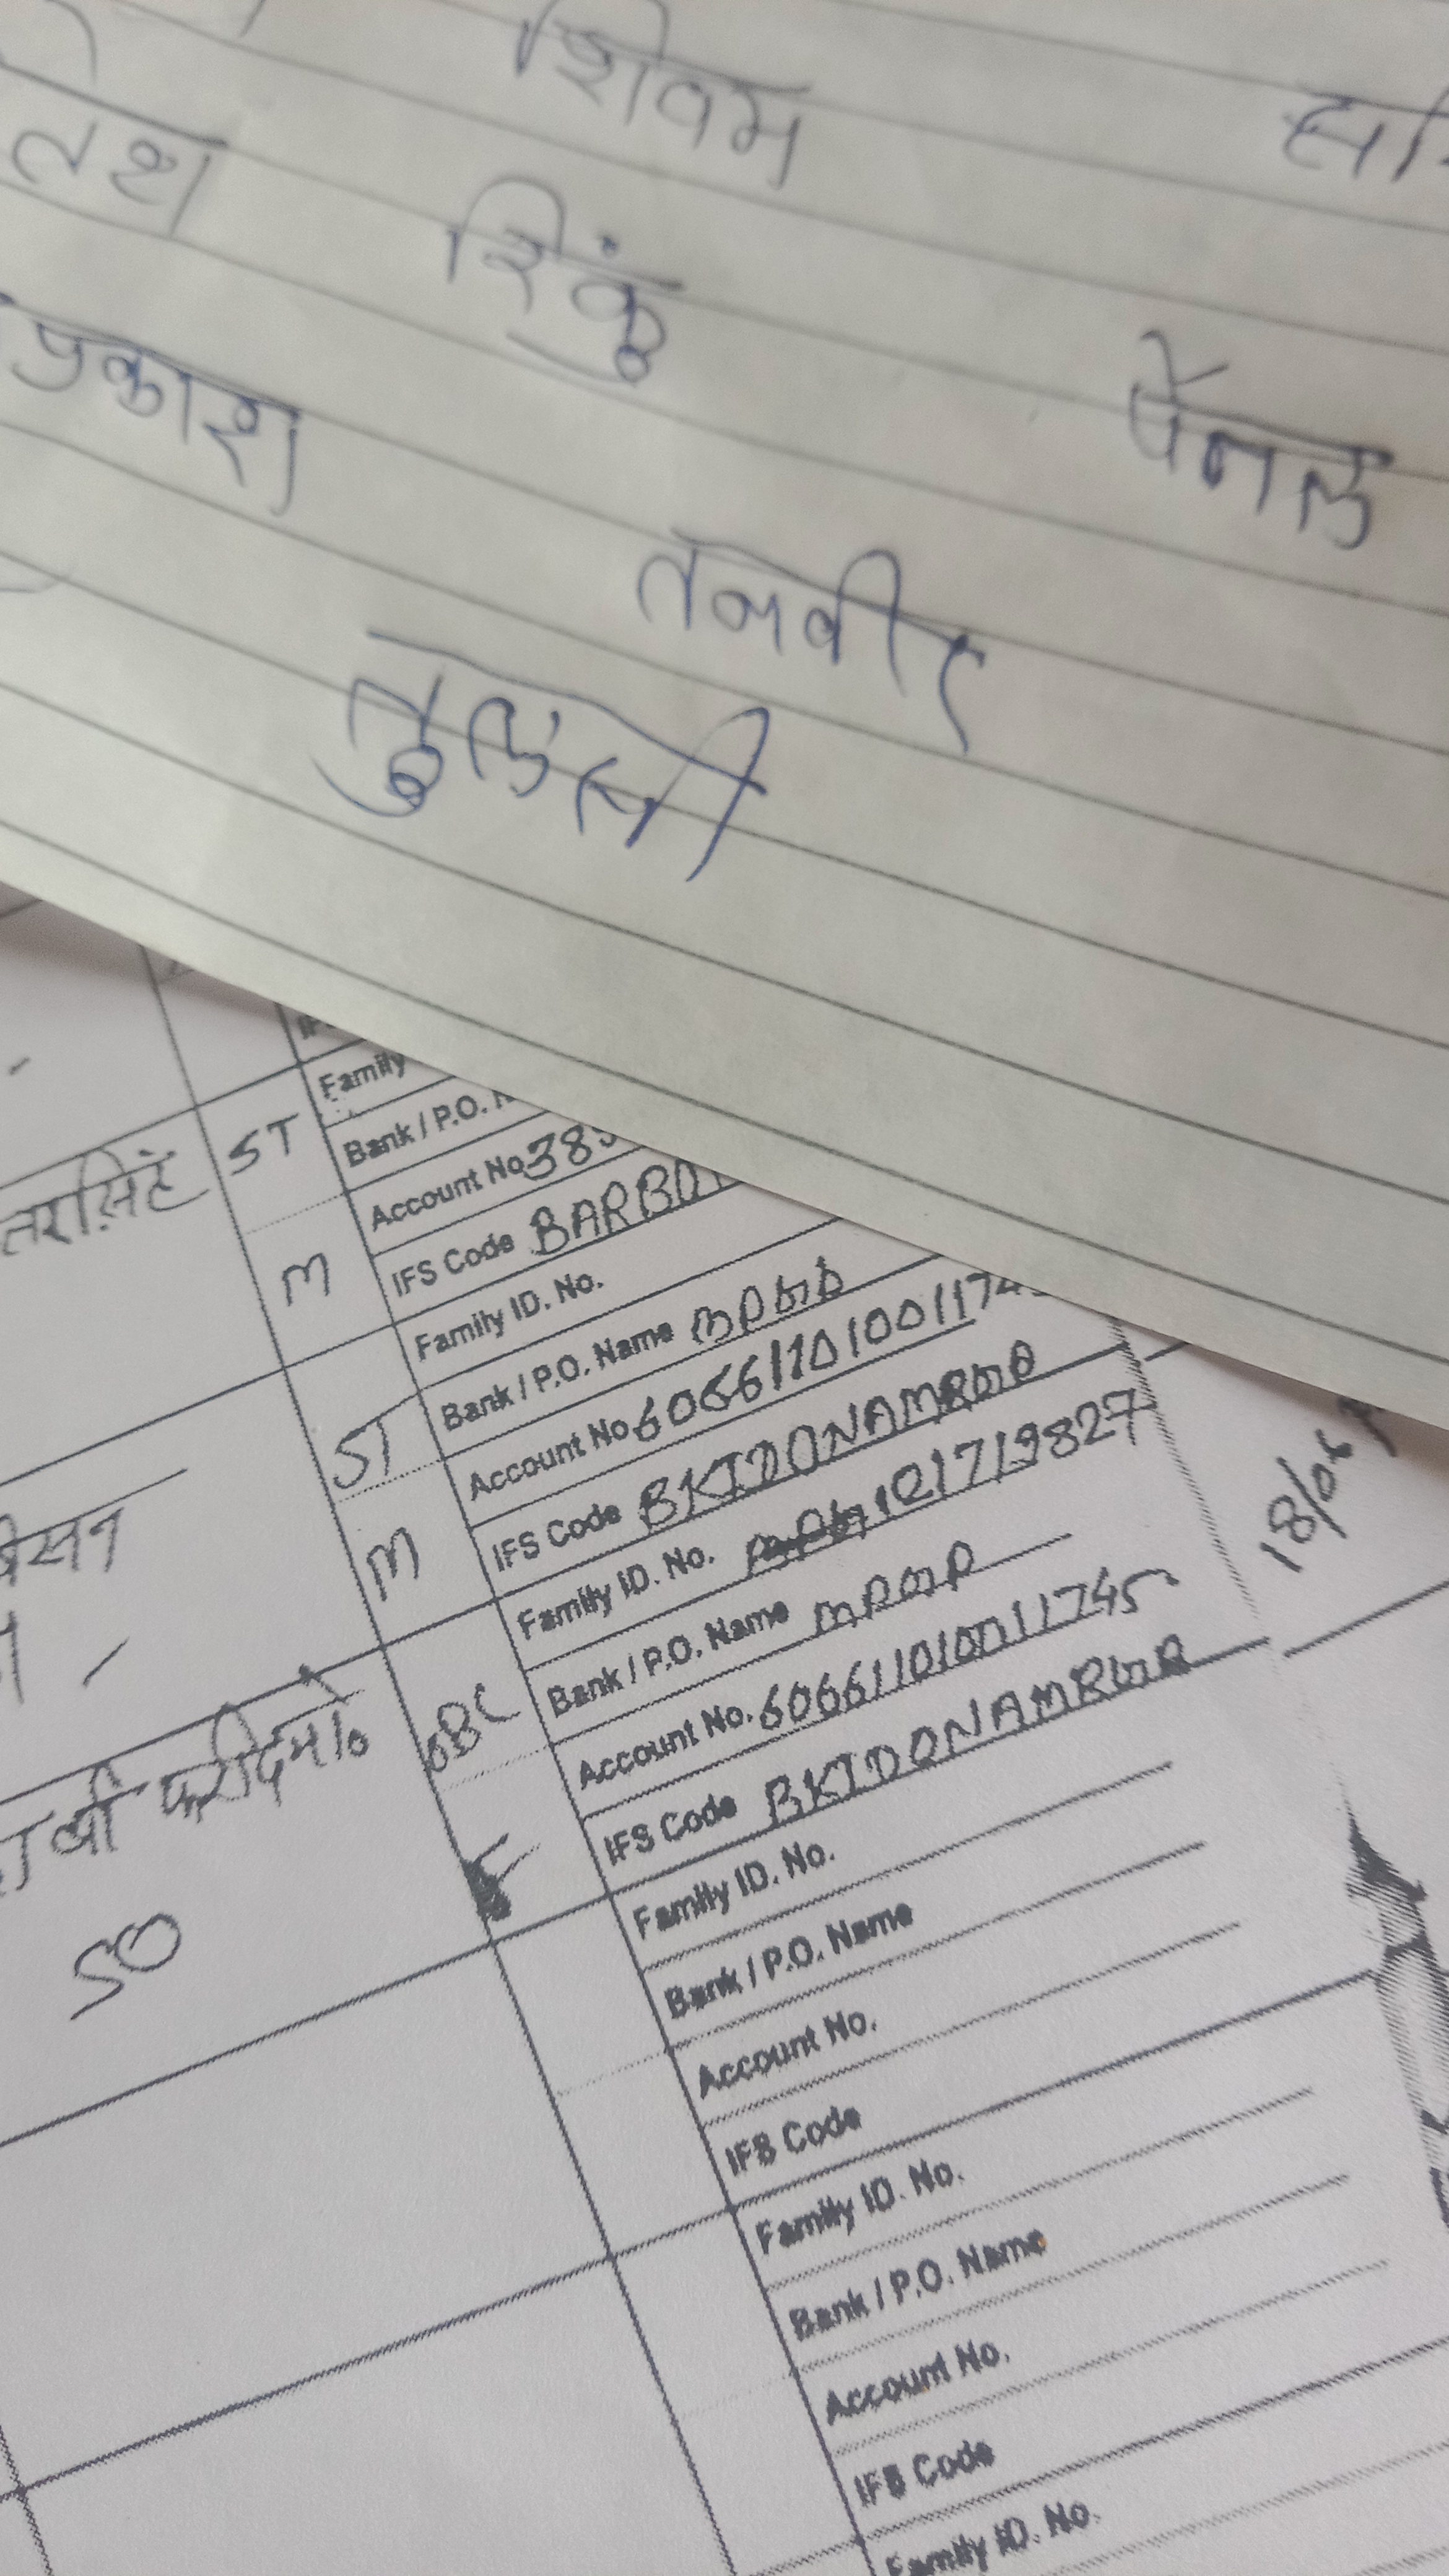 शिवम
रिंकू
प्रकाश
पेनल
तनवीर
तुलसी
Family
Bank / P.O.
ST
Account No. 385
IFS Code BARB0
M
Family ID. No.
Bank / P.O. Name MPGB
Account No. 60661101001174
ST
IFS Code BKIDONAMRGB
M
Family ID. No. 121719827
Bank / P.O. Name MPGB
Account No. 606611010011745
OBC
IFS Code BKIDONAMRGB
F
50
18/06
Family ID. No.
Bank / P.O. Name
Account No.
IFS Code
Family ID. No.
Bank / P.O. Name
Account No.
IFS Code
Family ID. No.